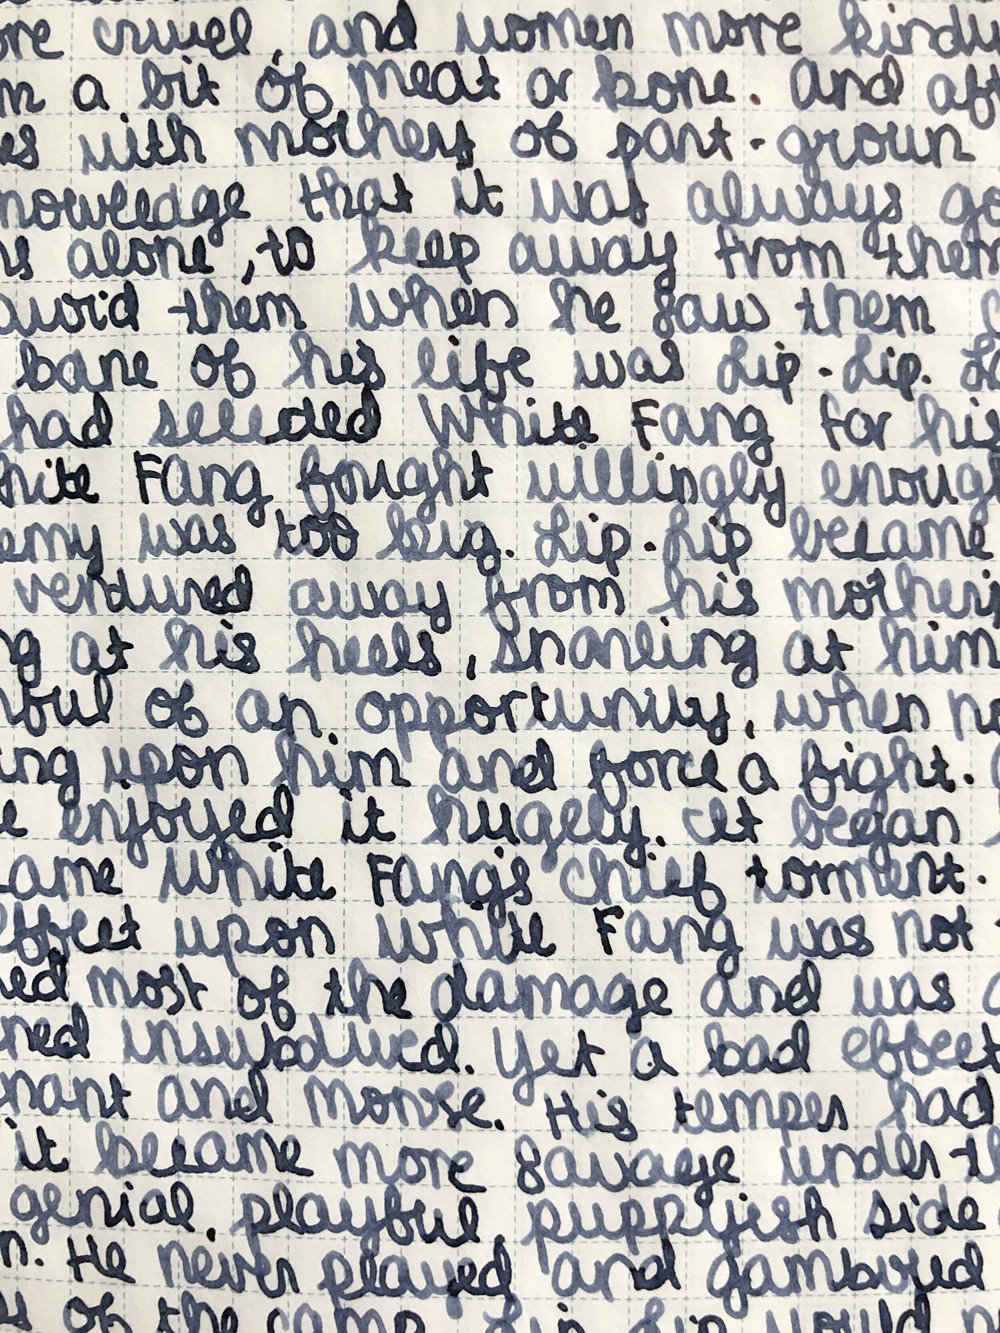 ore cruel, and women more kindly
m a bit of meat or bone. And aft
es with mothers of part-grown
nowledge that it was always go
ns alone, to keep away from them
avoid them when he saw them
bane of his life was Lip-Lip. L
had selected White Fang for his
hite Fang fought willingly enough
emy was too big. Lip-Lip became
ventured away from his mother
ng at his heels, snarling at him
hful of an opportunity, when n
ing upon him and force a fight.
e enjoyed it hugely. It began
ame White Fang's chief torment.
effect upon White Fang was not
red most of the damage and was
ned unsubdued. Yet a bad effect
nant and morose. His temper had
it became more savage under th
genial, playful, puppyish side
n. He never played and gamboled
s of the camp Lip-Lip would n